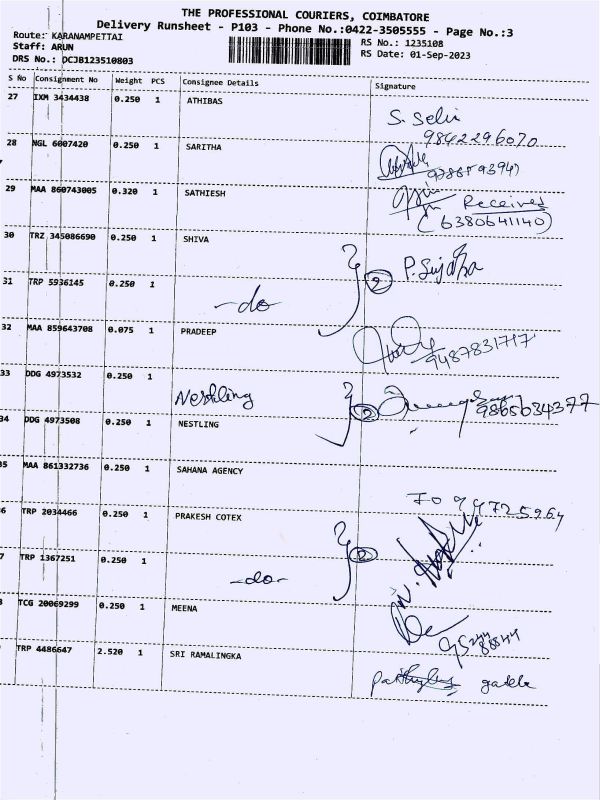 THE PROFESSIONAL COURIERS, COIMBATORE
Delivery Runsheet - P103 - Phone No.:0422-3505555 - Page No.:3
Route: KARANAMPETTAI
Staff: ARUN
DRS No.: DCJB123510803
RS No.: 1235108
RS Date: 01-Sep-2023
S No Consignment No Weight PCS Consignee Details Signature
27 IXM 3434438 0.250 1 ATHIBAS
S. Selvi
9842296070
28 NGL 6007420 0.250 1 SARITHA
29 MAA 860743005 0.320 1 SATHIESH
Received
(6380641140)
30 TRZ 345086690 0.250 1 SHIVA
P. Sujatha
31 TRP 5936145 0.250 1 -do-
32 MAA 859643708 0.075 1 PRADEEP
9487831717
33 DDG 4973532 0.250 1 Nestling
9865034377
34 DDG 4973508 0.250 1 NESTLING
35 MAA 861332736 0.250 1 SAHANA AGENCY
6 TRP 2034466 0.250 1 PRAKESH COTEX
7 TRP 1367251 0.250 1 -do-
TCG 20069299 0.250 1 MEENA
TRP 4486647 2.520 1 SRI RAMALINGKA